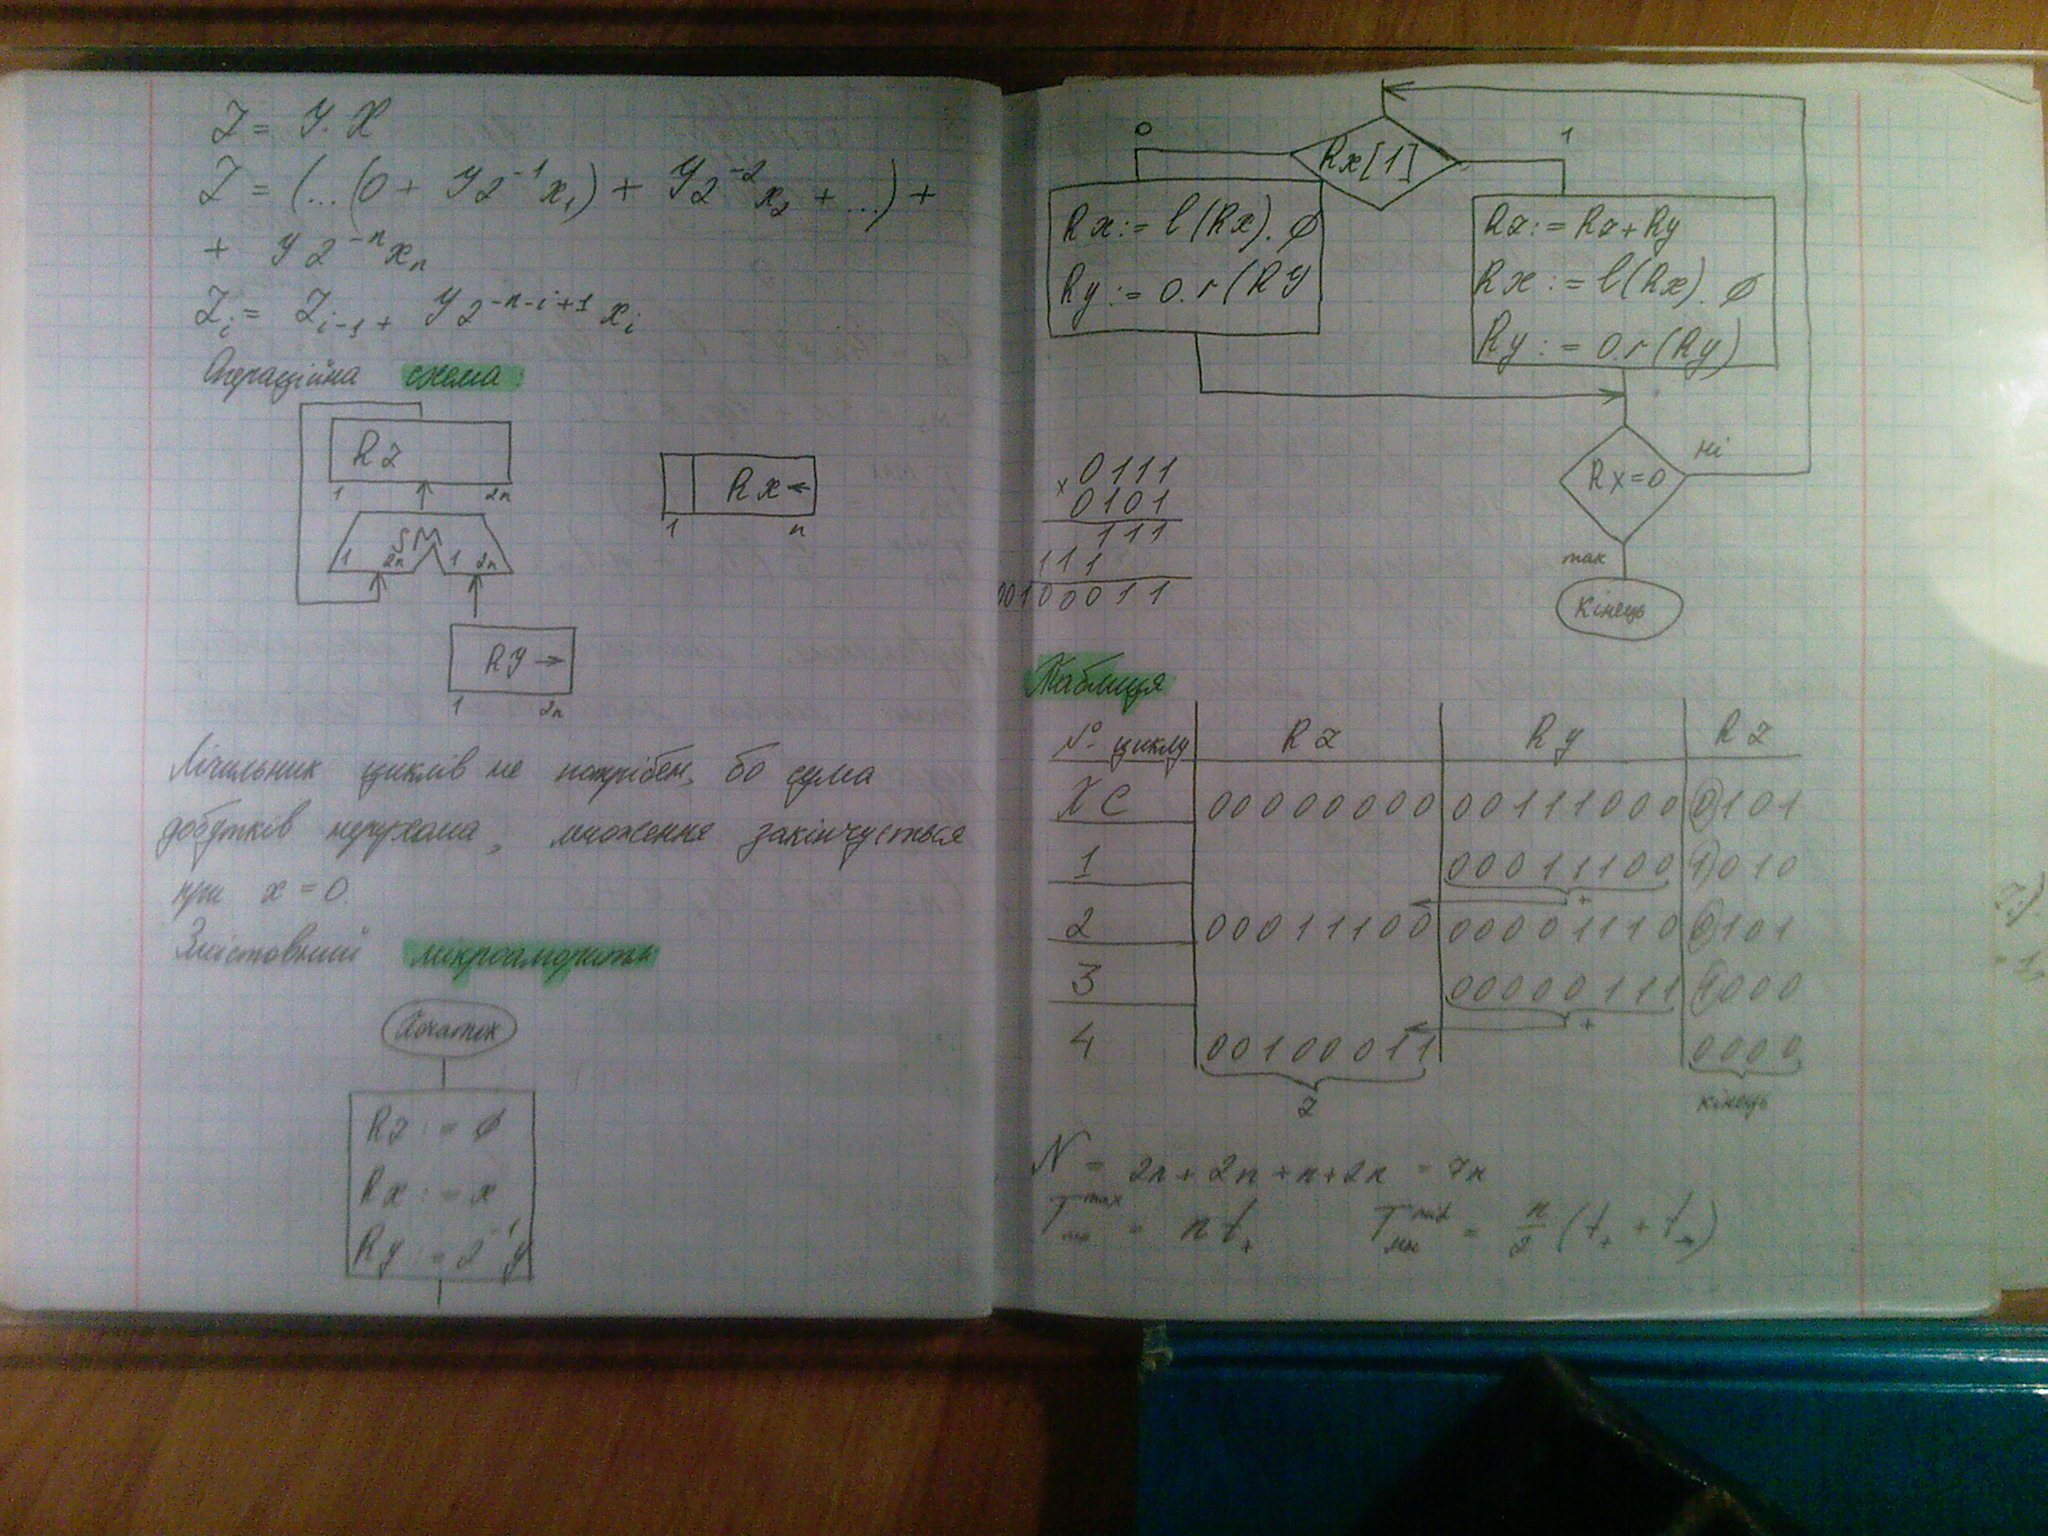 Z = Y·X
Z = (...(0 + Y2⁻¹x₁) + Y2⁻²x₂ + ...) +
+ Y2⁻ⁿxₙ
Zᵢ = Zᵢ₋₁ + Y2⁻ⁿ⁻ⁱ⁺¹xᵢ
Операційна схема:
RZ
1 2n
RX ←
1 n
SM
1 2n 1 2n
RY →
1 2n
Лічильник циклів не потрібен, бо сума
добутків нерухома, множення закінчується
при x = 0.
Змістовний мікроалгоритм
Початок
Rz := ∅
Rx := x
Ry := 2⁻¹y
Rx[1]
0
1
Rx := l(Rx).∅
Ry := 0.r(RY
Rz := Rz + Ry
Rx := l(Rx).∅
Ry := 0.r(Ry)
RX=0
Ні
так
Кінець
x 0111
0101
111
111
00100011
Таблиця
№ циклу RZ Ry RZ
ХС 00000000 00111000 0101
1 00011100 1010
+
2 00011100 00001110 0101
3 00000111 1000
+
4 00100011 0000
Z кінець
N = 2n + 2n + n + 2n = 7n